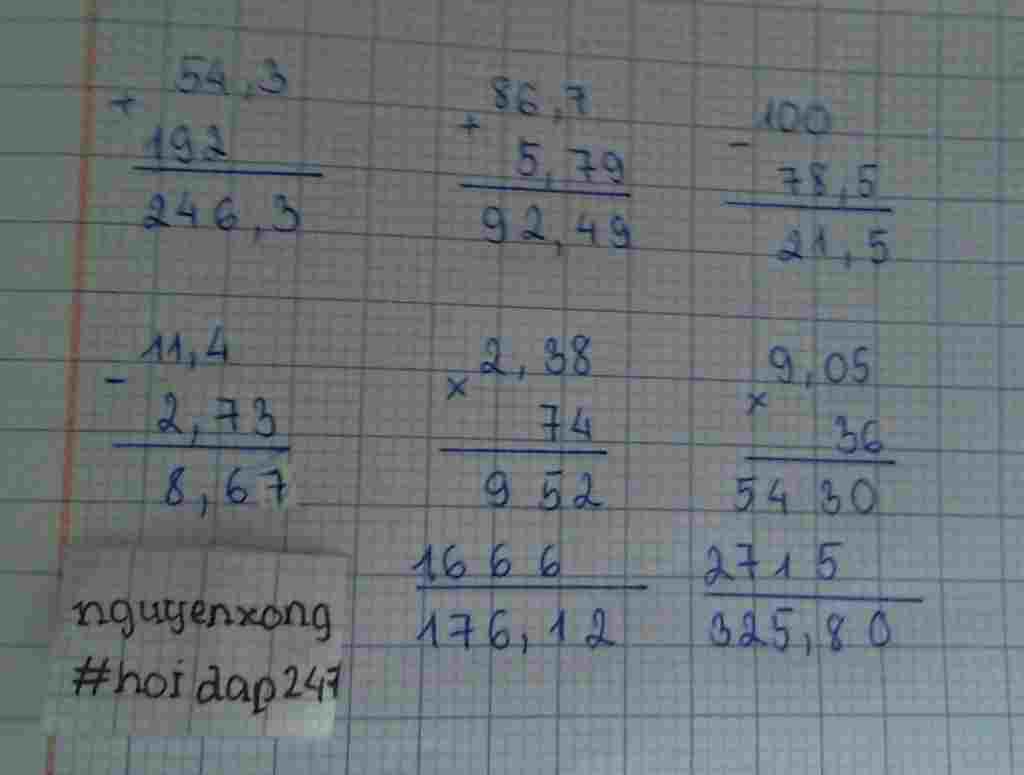 54,3
+
192
246,3
86,7
+
5,79
92,49
100
-
78,5
21,5
11,4
-
2,73
8,67
2,38
x
74
952
1666
176,12
9,05
x
36
5430
2715
325,80
nguyenxong
#hoidap247